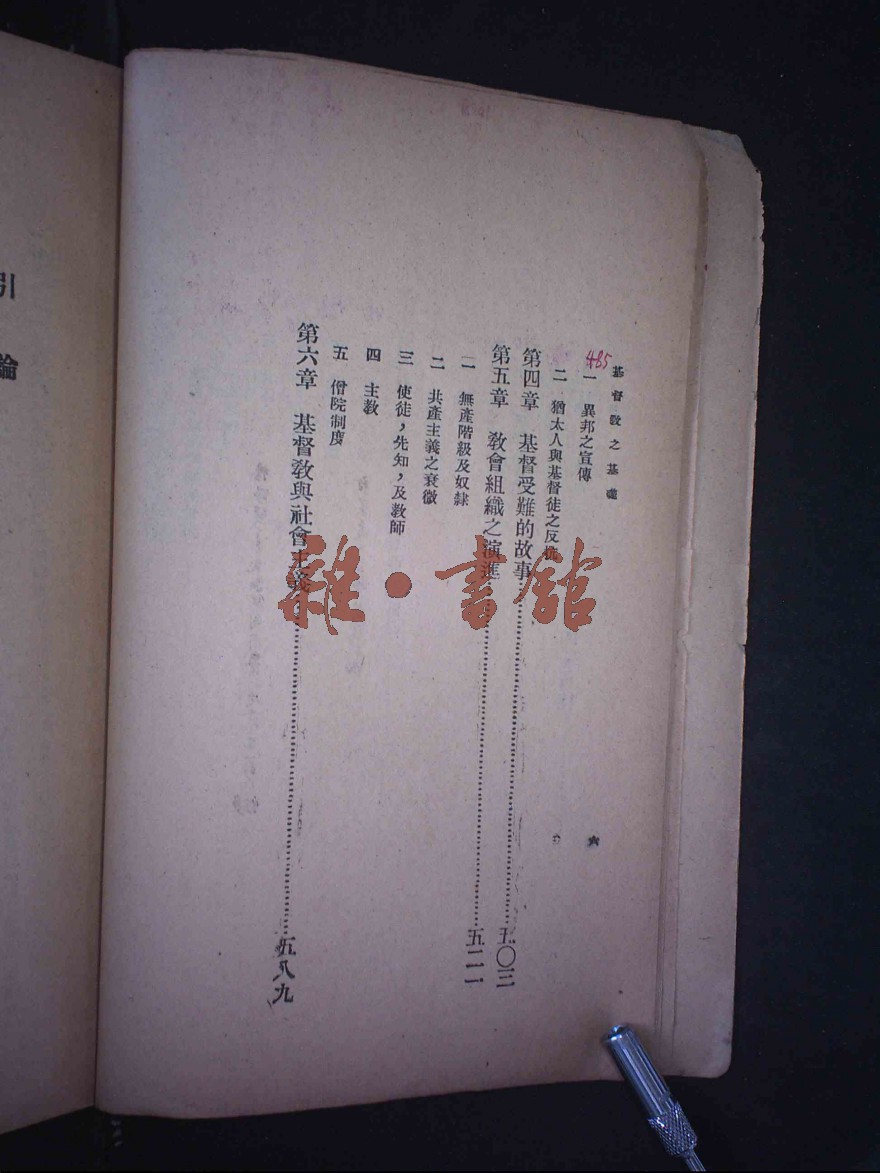 基督教之基礎
485
一 異邦之宣傳
二 猶太人與基督徒之反
第四章 基督受難的故事……五〇三
第五章 教會組織之演進……五二一
一 無產階級及奴隸
二 共產主義之衰微
三 使徒，先知，及教師
四 主教
五 僧院制度
第六章 基督教與社會主義……五八九
六
雜·書館
引
論